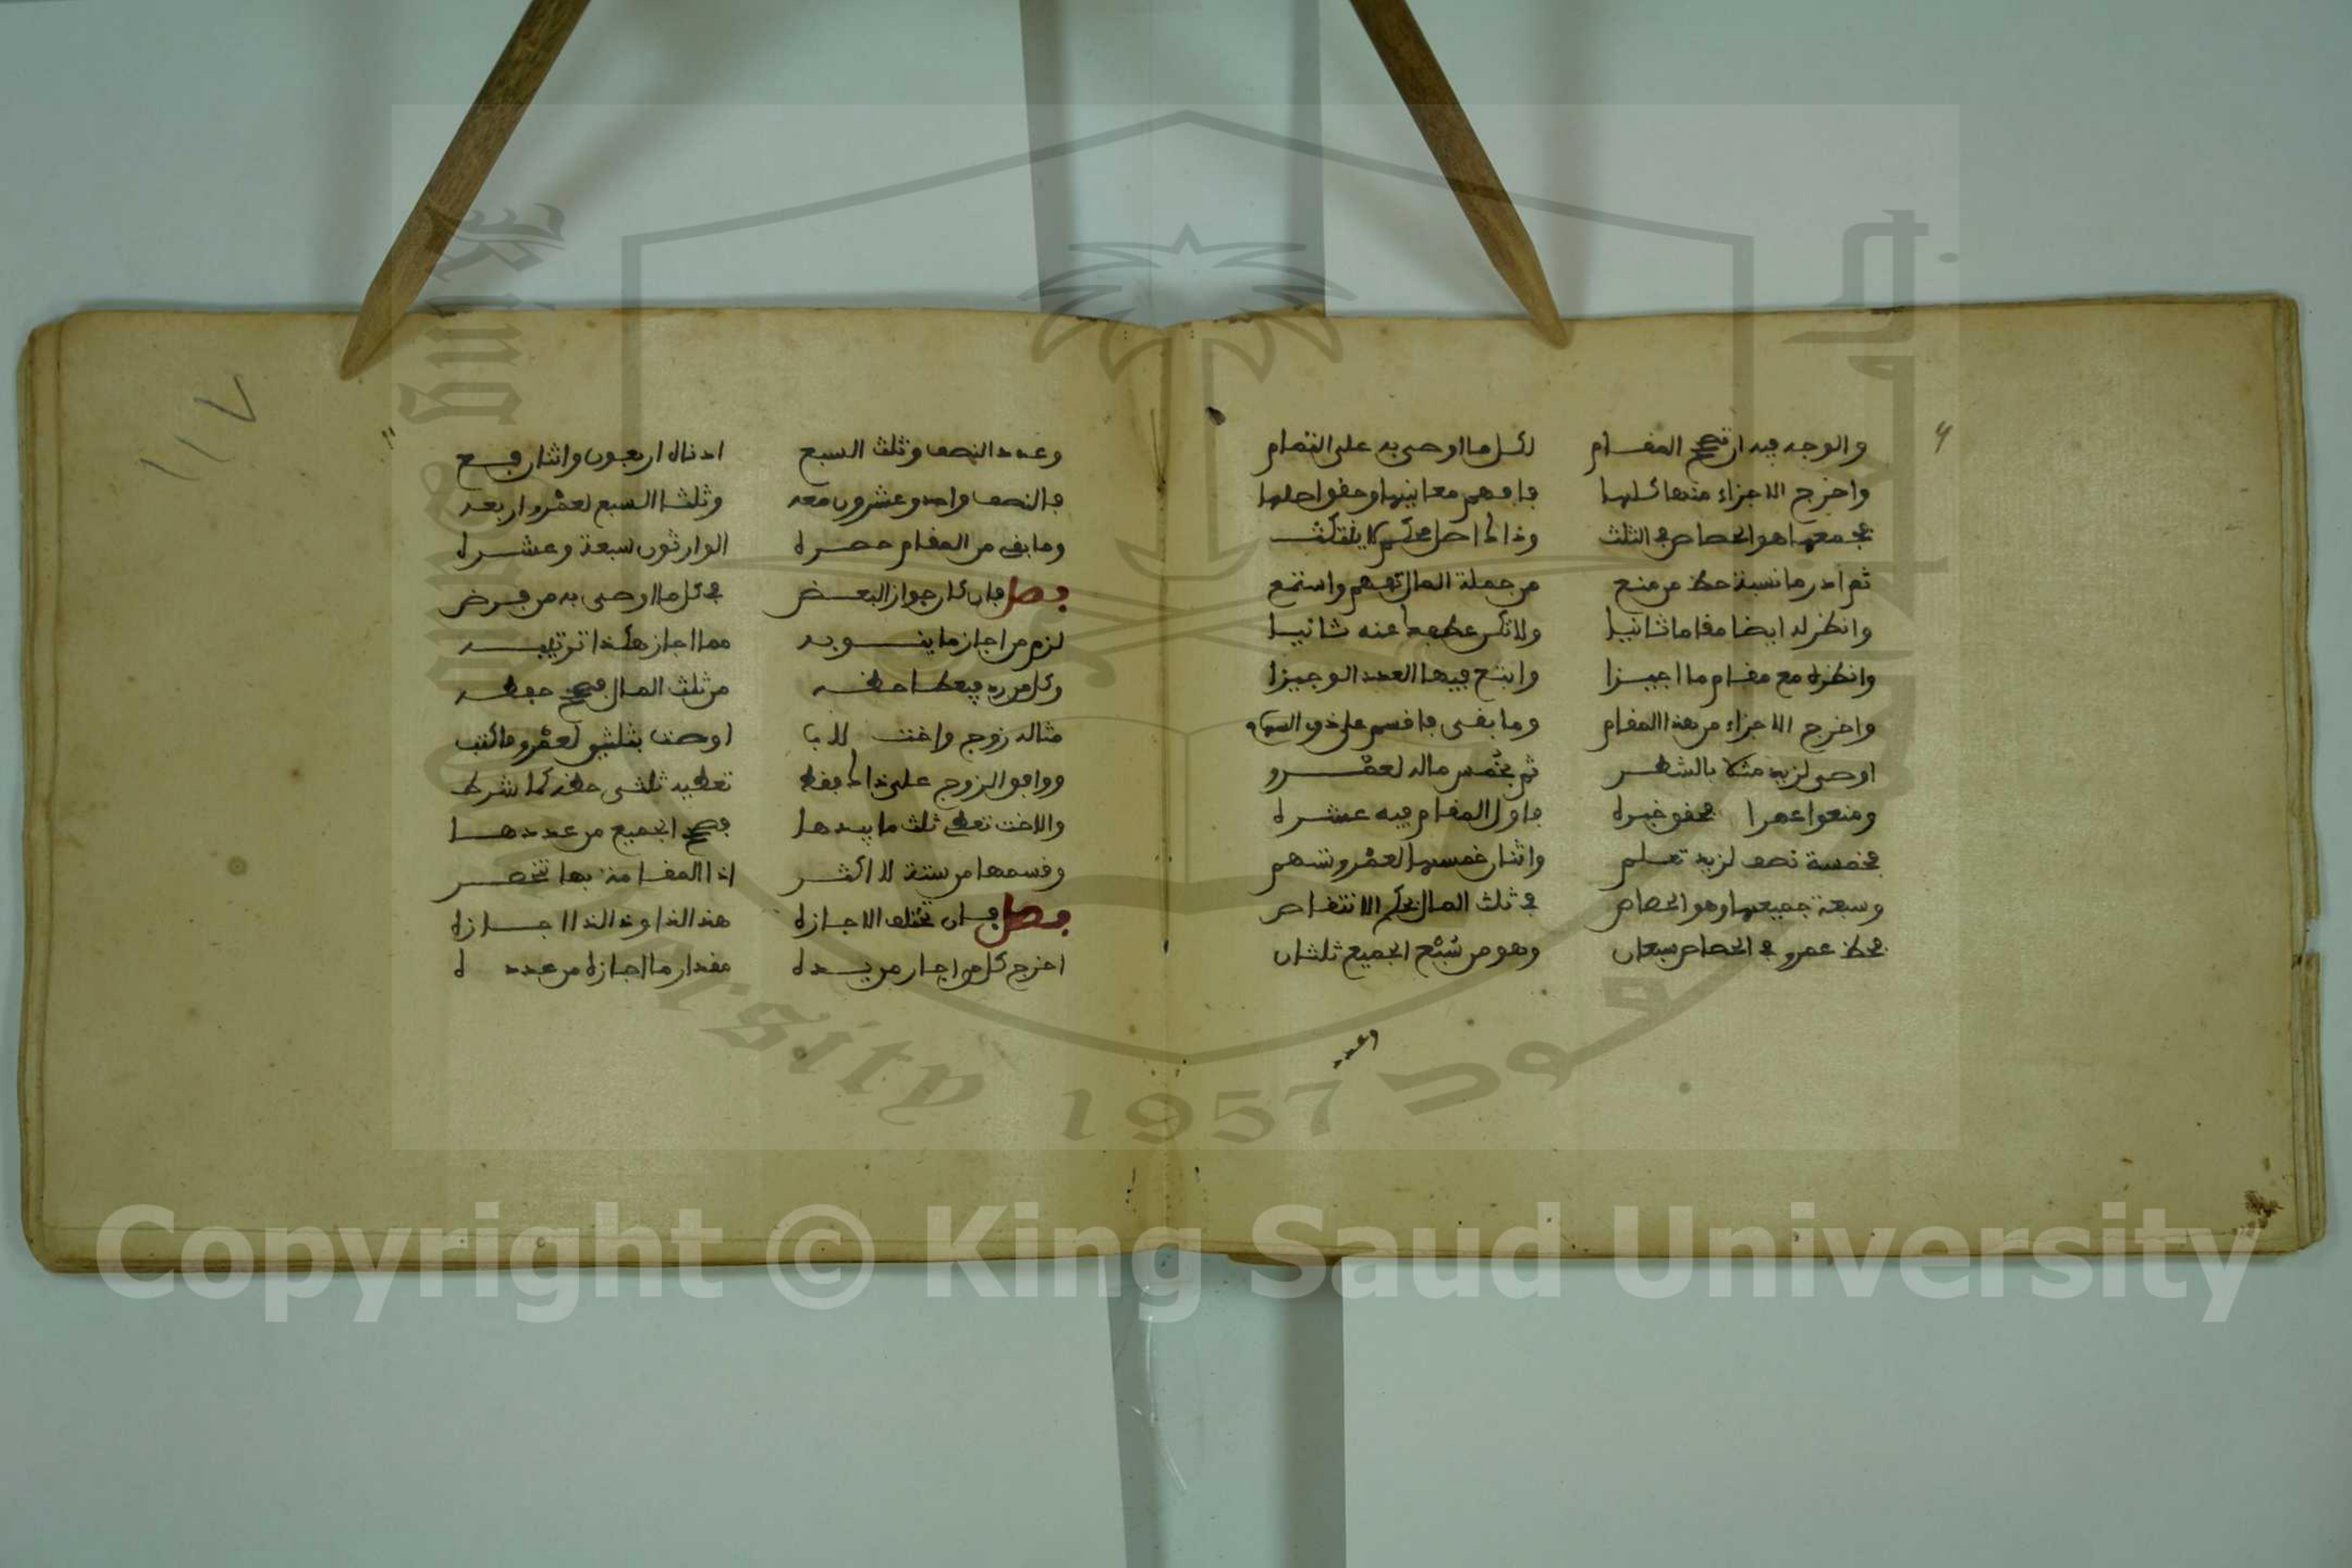 والوجه فيه ان تصحح المقام لكل ما اوصى به على التمام
واخرج الاجزاء منها كلها فافهم معانيها وحقق اصلها
فجمعها هو الحصاص في الثلث وذاك اصل محكم لا ينتكث
ثم ادر ما نسبة حظ من منع من جملة المال تفهم واستمع
وانظر له ايضا مقاما ثانيا ولا تكن عنه ثانيا
وانظره مع مقام ما اجيزا وابتغ فيها العدد الوجيزا
واخرج الاجزاء من هذا المقام وما بقى فاقسم على ذوي السهام
اوصى لزيد مثلا بالشطر ثم بخمس ماله لعمرو
ومنعوا عمرا فحقق خبره فاول المقام فيه عشره
فخمسة نصف لزيد تعلم واثنان خمسها لعمرو تسهم
وسبعة جميعها وهو الحصاص في ثلث المال بحكم الانتقاص
فحظ عمرو في الحصاص سبعان وهو من سبع الجميع ثلثان
وعدد
وعدد النصف وثلث السبع ادناه اربعون واثنان فع
فالنصف واحد وعشرون معه وثلثا السبع لعمرو اربعه
وما بقى من المقام حصره الوارثون سبعة وعشره
فصل فان كان جواز البعض في كل ما اوصى به من فرض
لزم من اجاز ما ينوبه مما اجاز هكذا ترتيبه
وكل من رد فيعطى حظه من ثلث المال فصحح حفظه
مثاله زوج واخت للاب اوصت بثلثين لعمرو فاكتب
ووافق الزوج على ذاك فقط تعطيه ثلثى حظه كما شرط
والاخت تعطى ثلث ما بيدها فصحح الجميع من عددها
وقسمها من ستة لا اكثر اذا المقامة بها تنحصر
فصل فان تختلف الاجازه هذا لذا وذا لذا اجازه
اخرج لكل من اجاز من يده مقدار ما اجازه من عدده
١١٧
١١